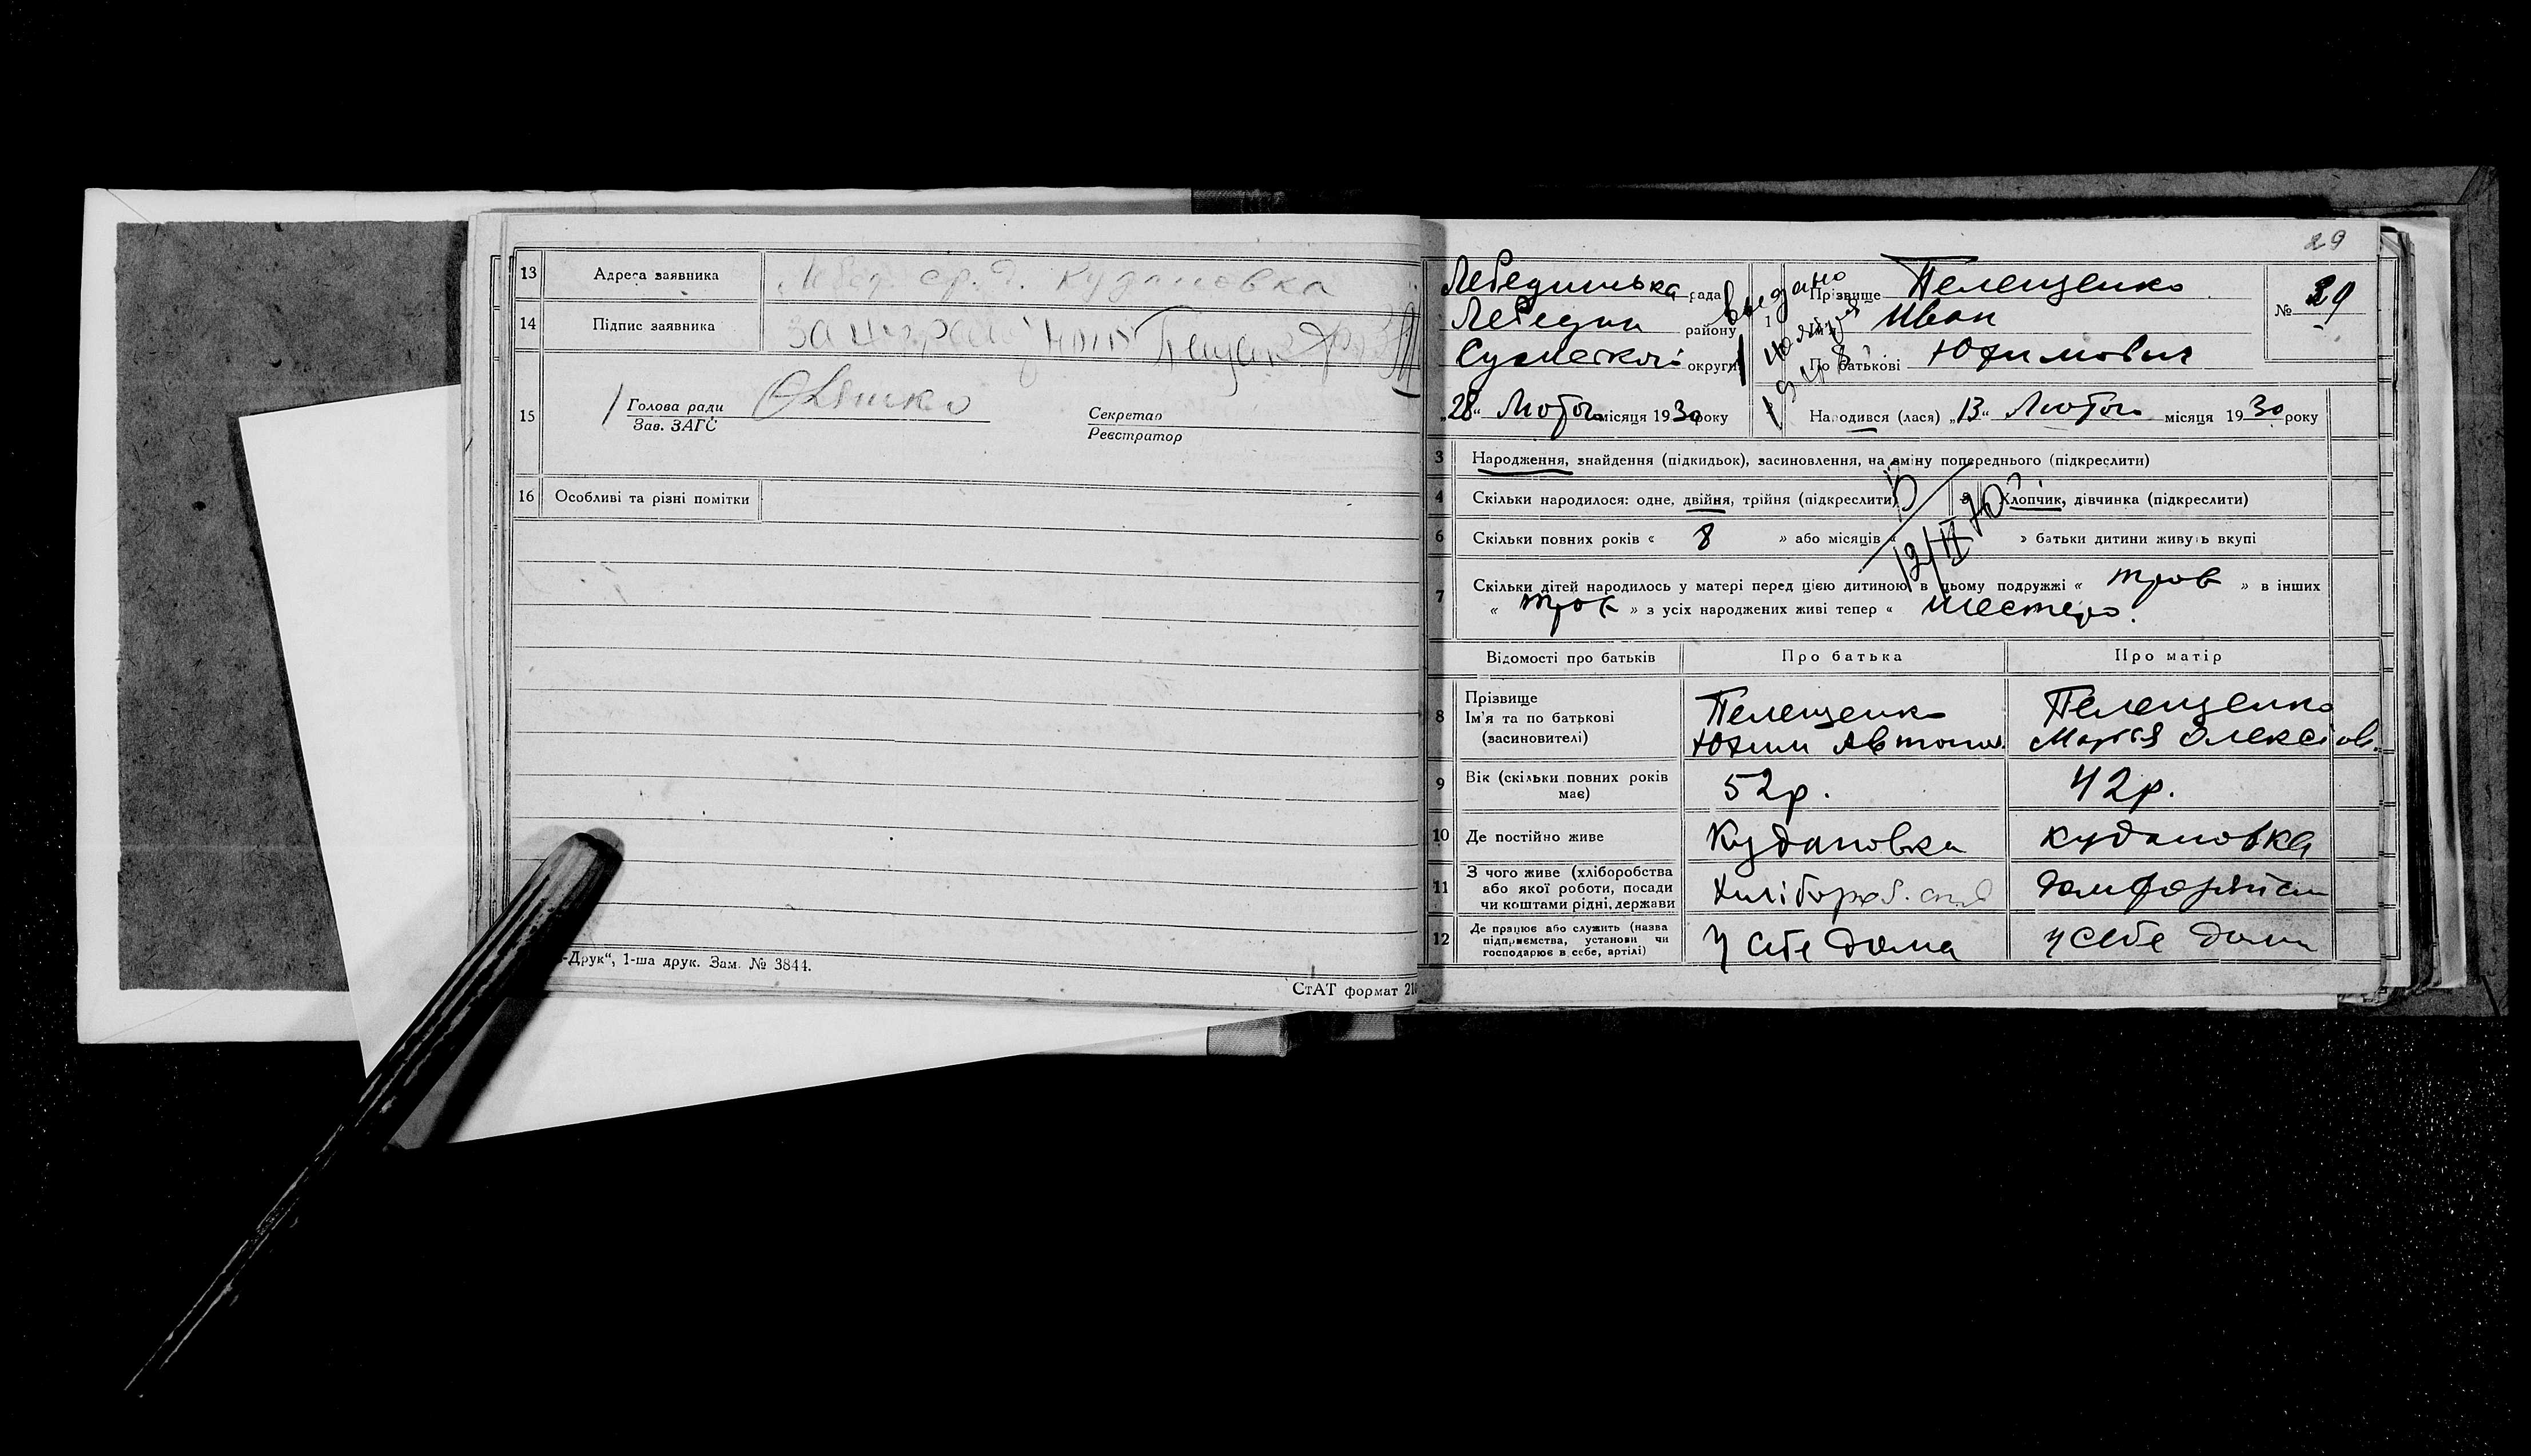 13 Адреса заявника Кудановка
14 Підпис заявника
15 Голова ради
Зав. ЗАГС
Секретар
Реєстратор
16 Особливі та різні помітки
-Друк“, 1-ша друк. Зам. № 3844.
СтАТ формат 21
29
Лебединська рада
Лебедин району
Сумської округи
„28“ Лютого місяця 1930 року
видано
Прізвище Пелещенко
Ім'я Иван
По батькові Юхимович
№ 29
Народився (лася) „13“ Лютого місяця 1930 року
3 Народження, знайдення (підкидьок), засиновлення, на зміну попереднього (підкреслити)
4 Скільки народилося: одне, двійня, трійня (підкреслити) 5 Хлопчик, дівчинка (підкреслити)
6 Скільки повних років « 8 » або місяців « » батьки дитини живуть вкупі
12/II
7 Скільки дітей народилось у матері перед цією дитиною в цьому подружжі « троє » в інших
« троє » з усіх народжених живі тепер « шестеро.
Відомості про батьків Про батька Про матір
8 Прізвище
Ім'я та по батькові
(засиновителі)
Пелещенко
Юхим Автоном.
Пелещенко
Марія Олексіов.
9 Вік (скільки повних років має) 52р. 42р.
10 Де постійно живе Кудановка Кудановка
11 З чого живе (хліборобства
або якої роботи, посади
чи коштами рідні, держави
Хлібороб.
12 Де працює або служить (назва
підприємства, установи чи
господарює в себе, артілі)
У себе дома
У себе дома